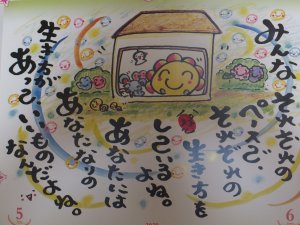 みんな、それぞれの
ペースで、
それぞれの
生き方を
しているよね。
あなたには
あなたなりの
生き方が
あって、いいもの
なんだよね。
5
6